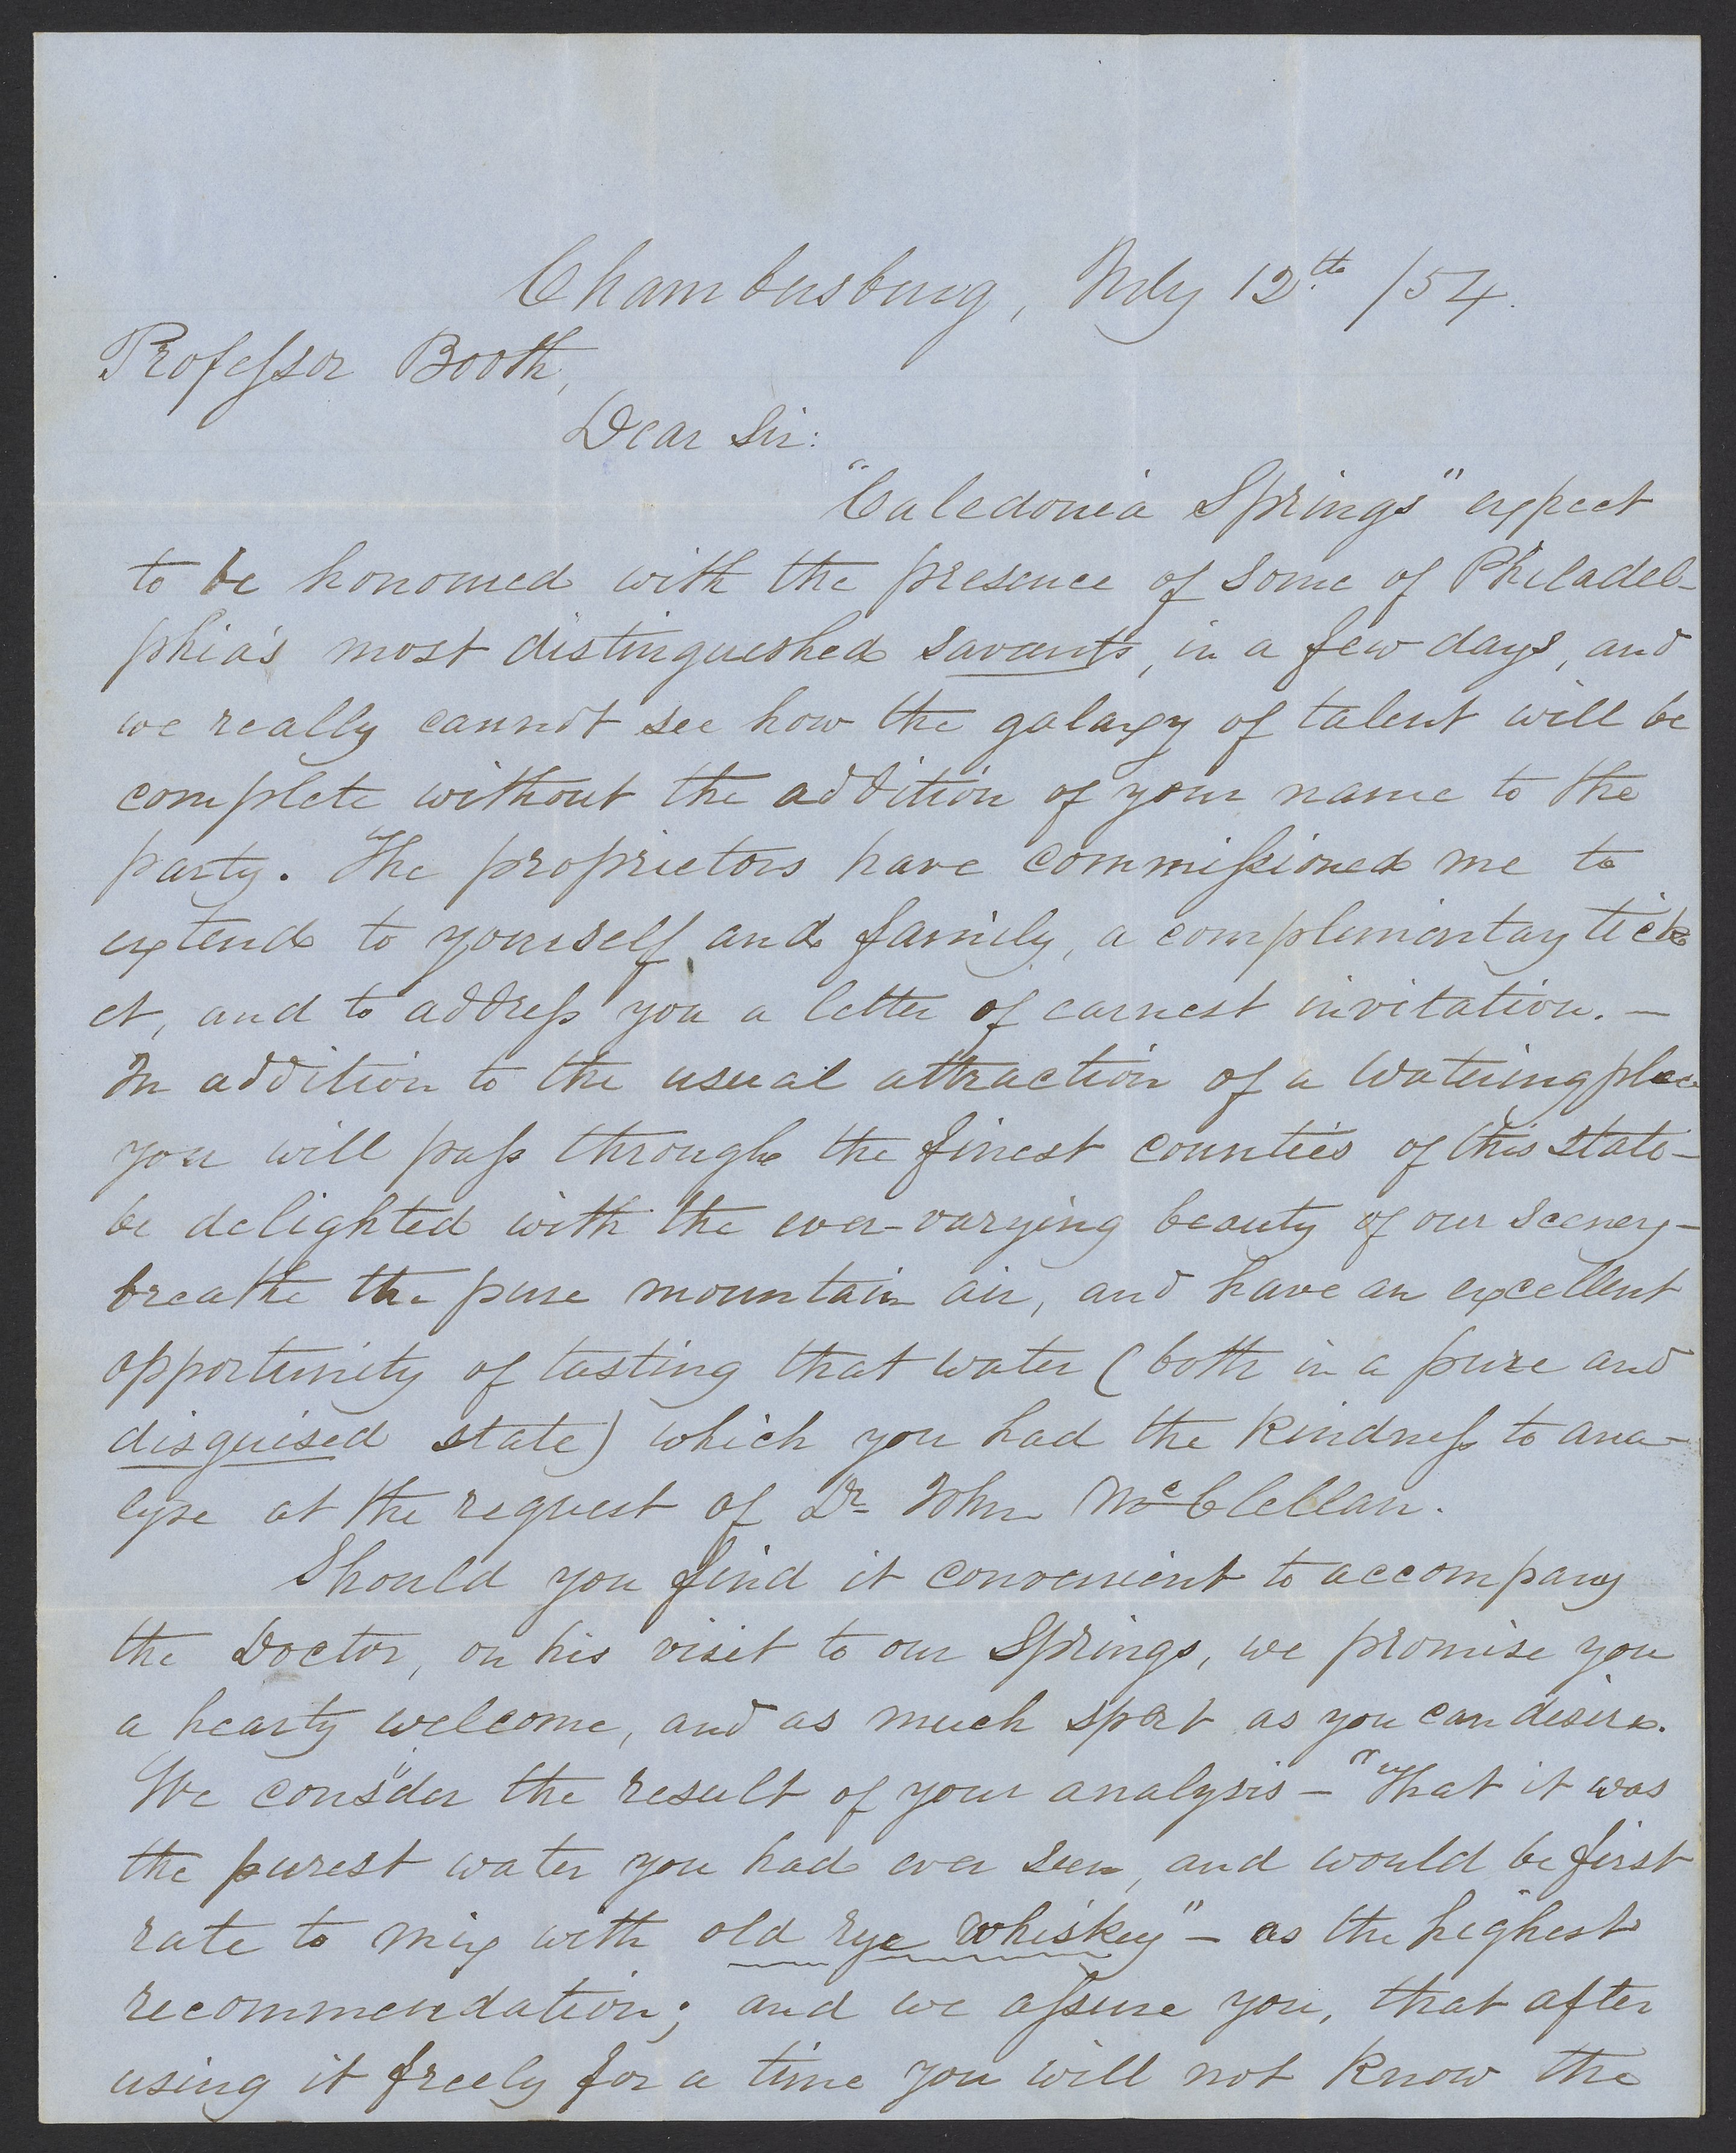 Chambersburg, July 12th /54.
Professor Booth,
Dear Sir:
"Caledonia Springs" expect
to be honoured with the presence of some of Philadel-
phia's most distinguished savants, in a few days, and
we really cannot see how the galaxy of talent will be
complete without the addition of your name to the
party. The proprietors have commissioned me to
extend to yourself and family, a complimentary tick
et, and to address you a letter of earnest invitation. —
In addition to the usual attraction of a Watering place
you will pass through the finest counties of this State-
be delighted with the ever-varying beauty of our scenery-
breathe the pure mountain air, and have an excellent
opportunity of tasting that water (both in a pure and
disguised state) which you had the kindness to ana-
lyse at the request of Dr John McClellan.
Should you find it convenient to accompany
the Doctor, on his visit to our Springs, we promise you
a hearty welcome, and as much sport as you can desire.
We consider the result of your analysis – "That it was
the purest water you had ever seen, and would be first
rate to mix with old rye whiskey" – as the highest
recommendation; and we assure you, that after
using it freely for a time you will not know the